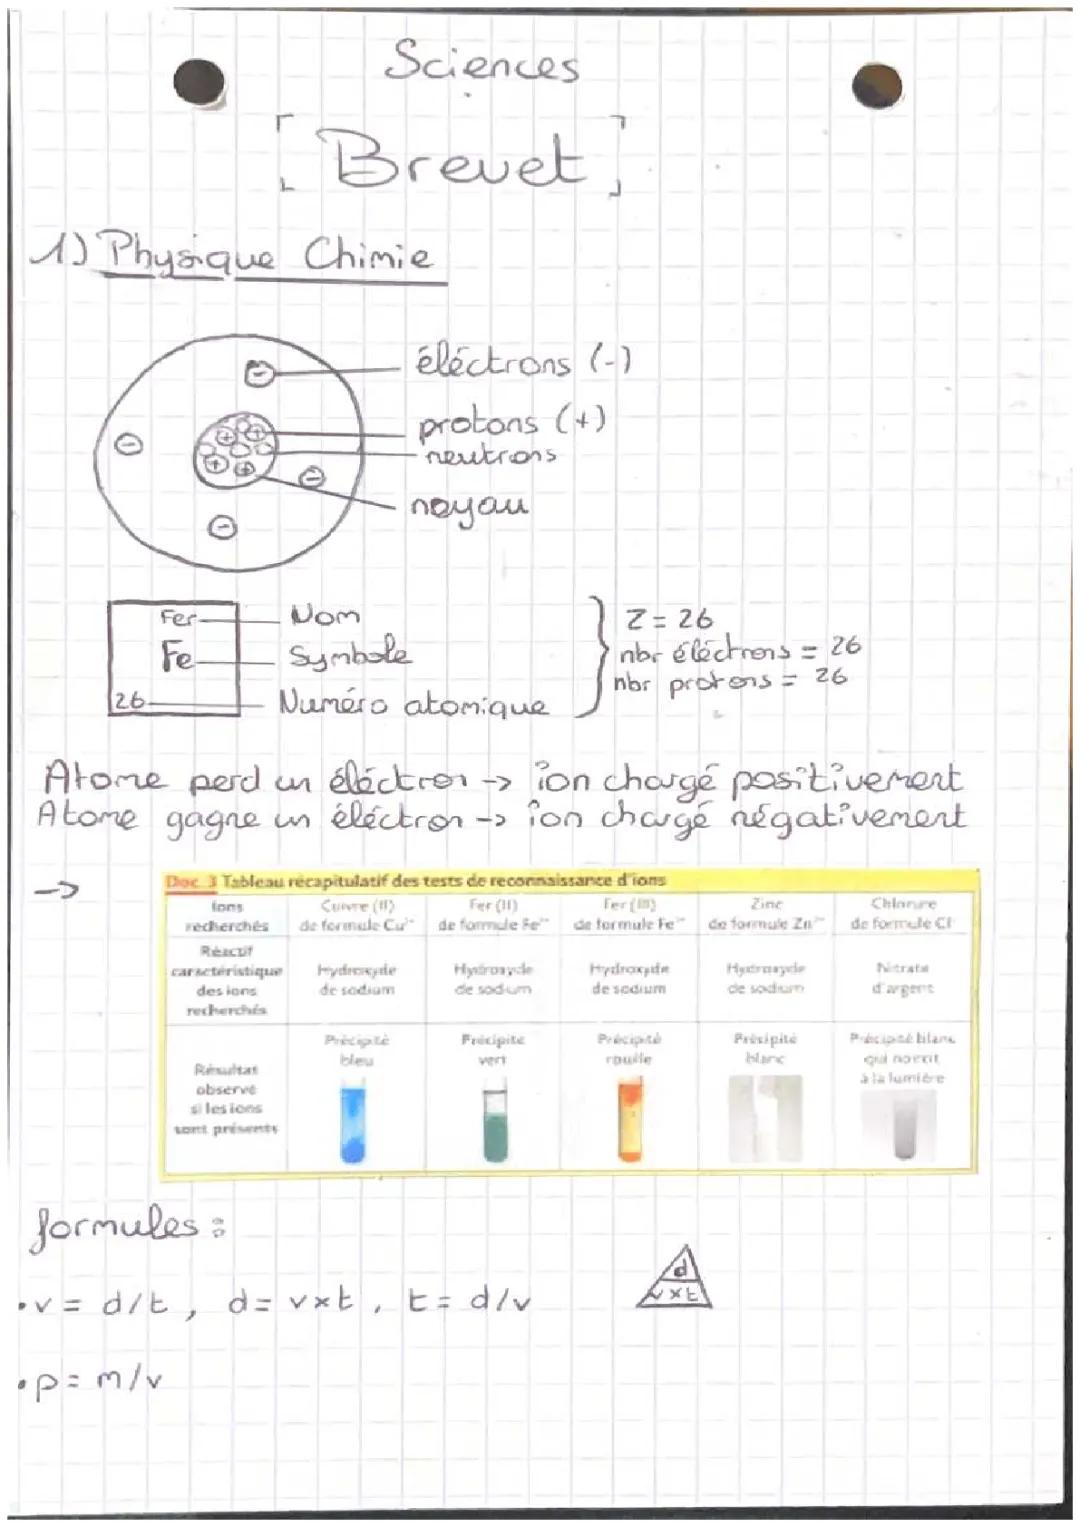 Sciences
[Brevet]
1) Physique Chimie
éléctrons (-)
protons (+)
neutrons
noyau
Fer
Nom
Fe
Symbole
26
Numéro atomique
Z = 26
nbr éléctrons = 26
nbr protons = 26
Atome perd un éléctron -> ion chargé positivement
Atome gagne un éléctron -> ion chargé négativement
->
Doc. 3 Tableau récapitulatif des tests de reconnaissance d'ions
Ions recherchés
Cuivre (II) de formule Cu
Fer (II) de formule Fe
Fer (III) de formule Fe
Zinc de formule Zn
Chlorure de formule Cl
Réactif caractéristique des ions recherchés
Hydroxyde de sodium
Hydroxyde de sodium
Hydroxyde de sodium
Hydroxyde de sodium
Nitrate d'argent
Résultat observé si les ions sont présents
Précipité bleu
Précipité vert
Précipité rouille
Précipité blanc
Précipité blanc qui noircit à la lumière
formules :
• v = d/t, d = v×t, t = d/v
d
v×t
• p = m/v